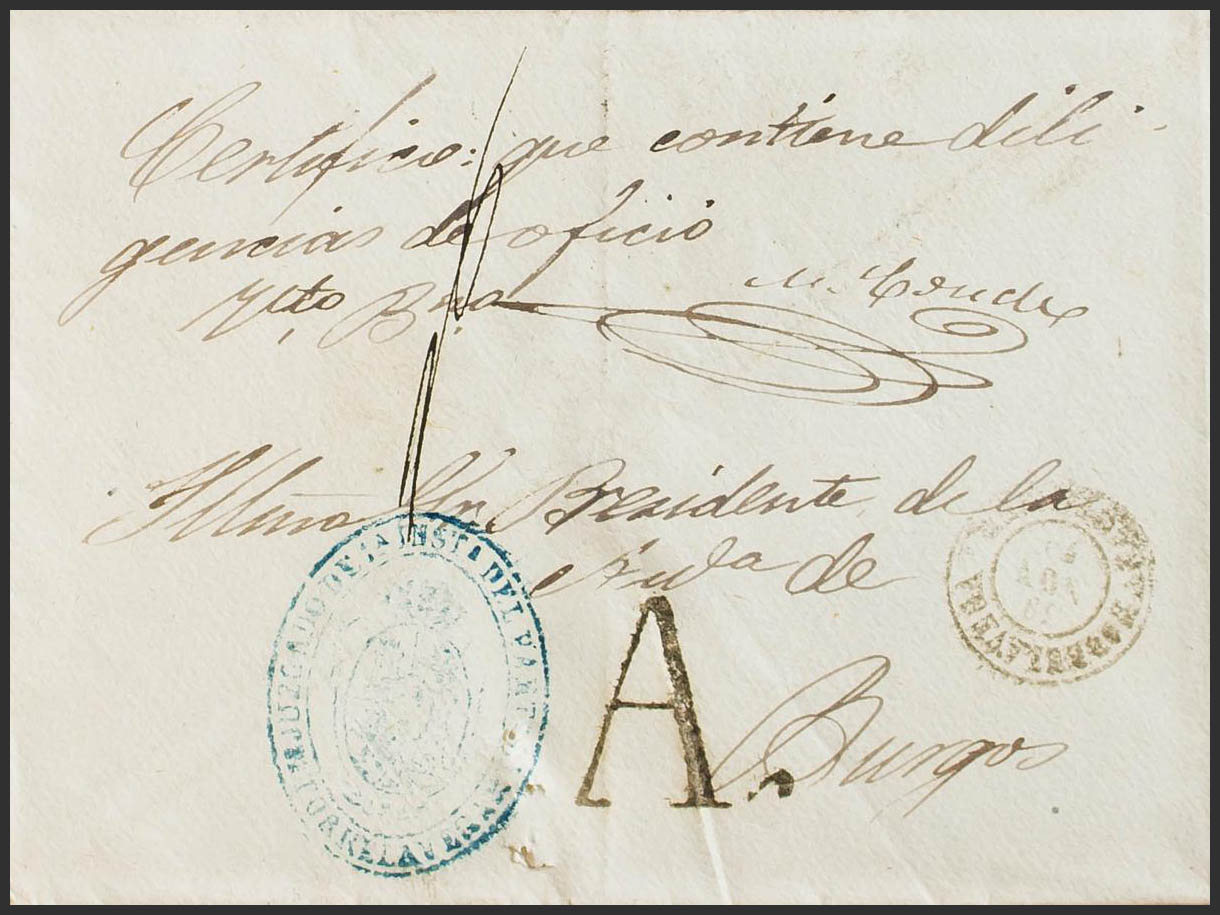 Certifico: que contiene dili-
gencias de oficio
M. Conde
Illmo Sr. Presidente de la
Auda de
Burgos
A.
JUZGADO DE 1a INSTa DEL PARTDO
DE TORRELAVEGA
TORRELAVEGA
AGO